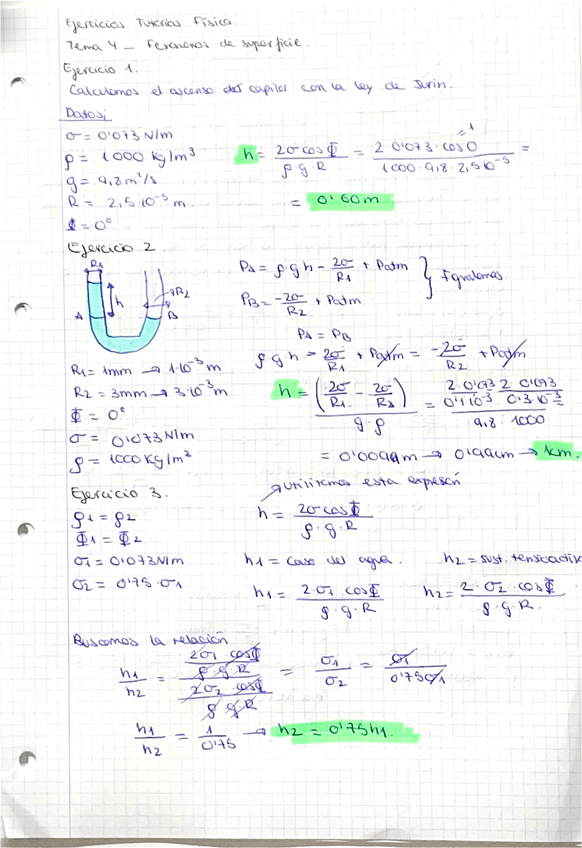 Ejercicios Tutorías Física.
Tema 4 – Fenómenos de superficie.
Ejercicio 1.
Calculamos el ascenso del capilar con la ley de Jurin.
Datos:
σ = 0'073 N/m
ρ = 1000 kg/m³
g = 9,8 m²/s
R = 2,5·10⁻⁵ m.
Φ = 0°
h = 2σ cos Φ / ρ g R = 2 · 0'073 · cos 0 / 1000 · 9,8 · 2,5·10⁻⁵ =
= 1
= 0'60m
Ejercicio 2.
R1
h
R2
A
B
R1 = 1mm → 1·10⁻³ m
R2 = 3mm → 3·10⁻³ m
Φ = 0°
σ = 0'073 N/m
ρ = 1000 kg/m³
PA = ρ·g·h – 2σ/R1 + Patm
PB = –2σ/R2 + Patm
} Igualamos.
PA = PB
ρ g h – 2σ/R1 + Patm = –2σ/R2 + Patm
= 0'0099m → 0'99cm → 1cm.
Ejercicio 3.
ρ1 = ρ2
Φ1 = Φ2
σ1 = 0'073 N/m
σ2 = 0'75 · σ1
utilizamos esta expresión
h = 2σ cos Φ / ρ · g · R
h1 = caso del agua.
h2 = sust. tensoactiv
h1 = 2·σ1 cos Φ / ρ · g · R
h2 = 2 · σ2 · cos Φ / ρ · g · R.
Buscamos la relación
h1/h2 = (2σ1 cos Φ / ρ · g · R) / (2σ2 · cos Φ / ρ g R) = σ1/σ2 = σ1/0'75σ1
h1/h2 = 1/0'75 → h2 = 0'75h1.